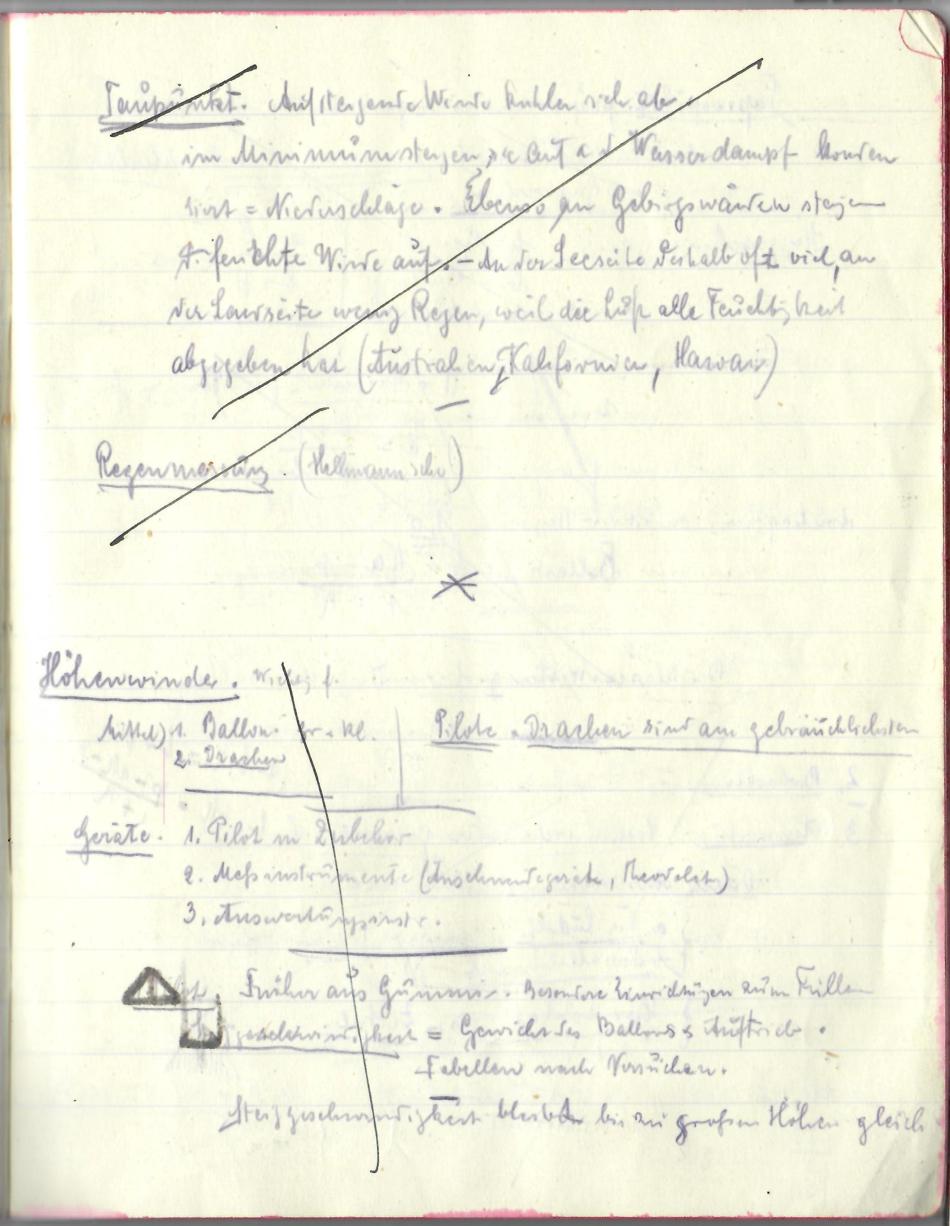 Taupunkt. Aufsteigende Winde kühlen sich ab
im Minimum steigen sie auf u. d. Wasserdampf konden
siert = Niederschläge. Ebenso an Gebirgswänden steigen
d. feuchte Winde auf. – An der Seeseite deshalb oft viel, an
der Landseite wenig Regen, weil die Luft alle Feuchtigkeit
abgegeben hat (Australien, Kalifornien, Hawai)
Regenmessung. (Hellmannsche)
Höhenwinde. Wichtig f.
Mittel) 1. Ballon gr. kl. Pilote. Drachen sind am gebräuchlichsten
2. Drachen
Geräte. 1. Pilot m Zubehör
2. Meßinstrumente (Anschneidegeräte, Theodolit)
3. Auswertungsinstr.
Früher aus Gummi. Besondere Einrichtungen zum Füllen
geschwindigkeit = Gewicht des Ballons & Auftrieb.
Tabellen nach Versuchen.
Steiggeschwindigkeit bleibt bis zu großen Höhen gleich